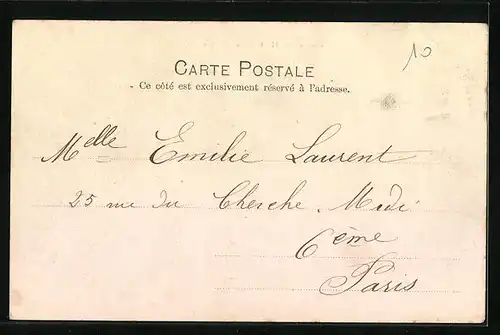 10
CARTE POSTALE
- Ce côté est exclusivement réservé à l'adresse.
Melle Emilie Laurent
25 rue du Cherche. Midi
6ème
Paris